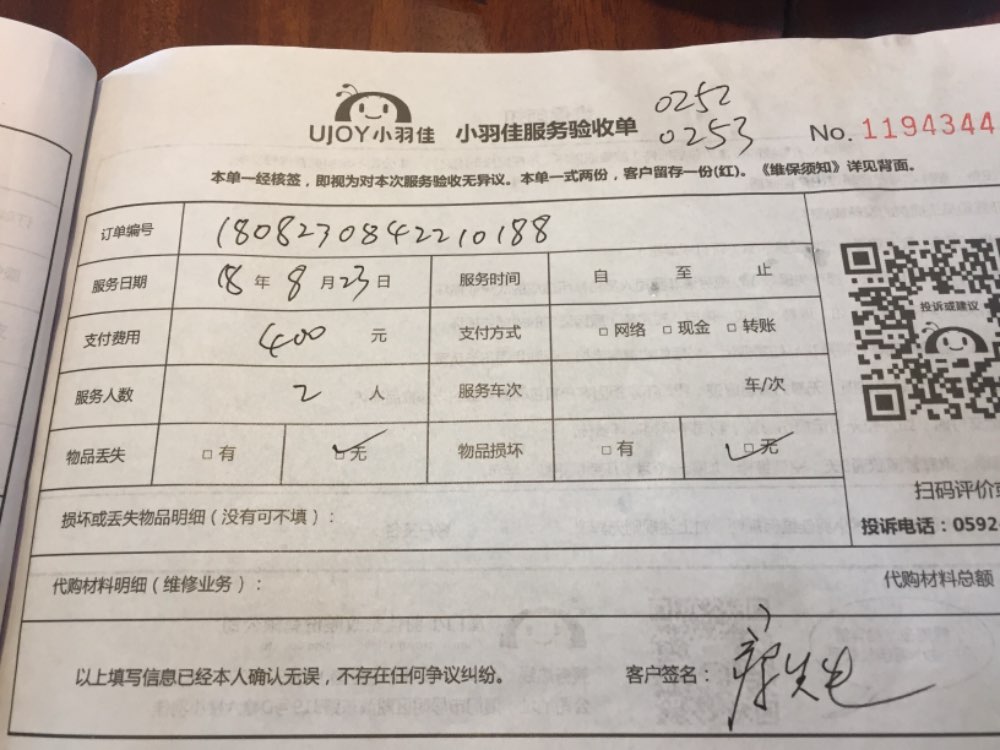 0252
UJOY小羽佳 小羽佳服务验收单 0253 No. 1194344
本单一经核签，即视为对本次服务验收无异议。本单一式两份，客户留存一份(红)。《维保须知》详见背面。
订单编号 1808230842210188
服务日期 18 年 8 月 23 日 服务时间 自 至 止
投诉或建议
支付费用 400 元 支付方式 □ 网络 □ 现金 □ 转账
服务人数 2 人 服务车次 车/次
物品丢失 □ 有 □ 无 物品损坏 □ 有 □ 无
扫码评价
损坏或丢失物品明细（没有可不填）：
投诉电话：0592-
代购材料明细（维修业务）： 代购材料总额
以上填写信息已经本人确认无误，不存在任何争议纠纷。 客户签名： 先生